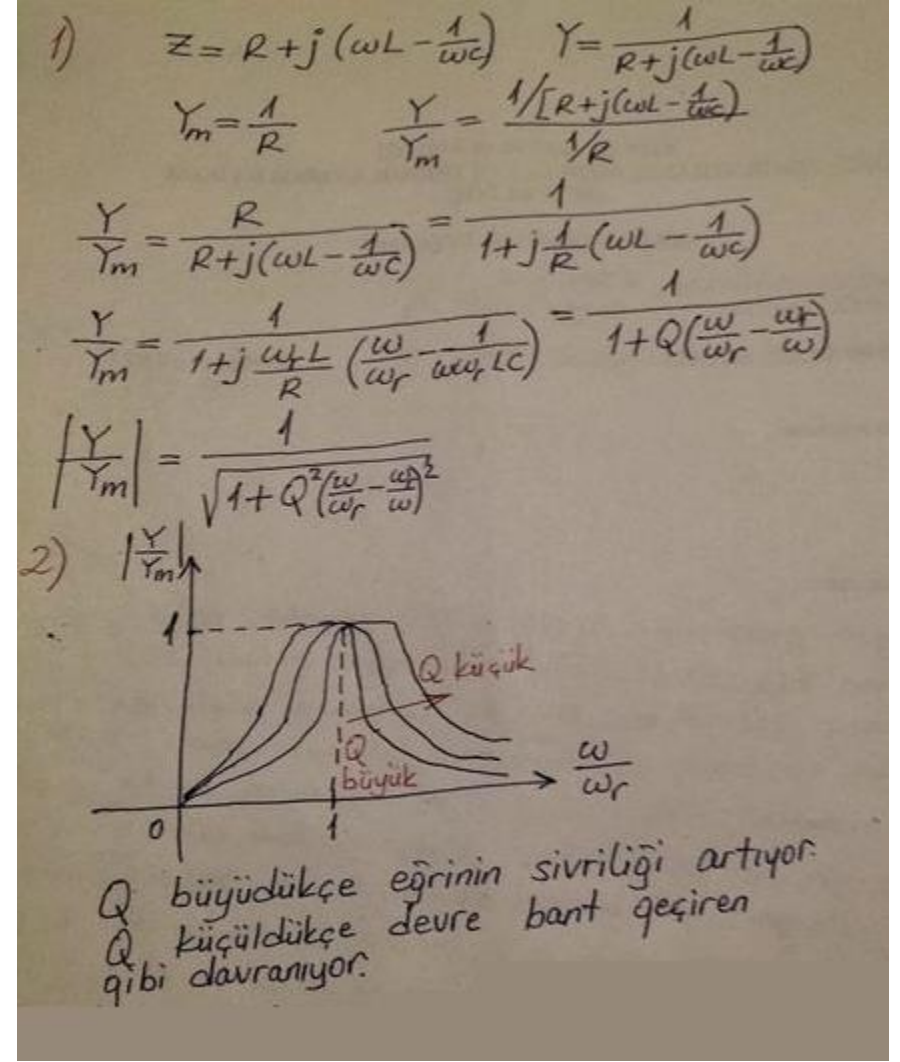 1) Z = R + j (ωL - 1/ωC) Y = 1/(R + j(ωL - 1/ωC))
Ym = 1/R Y/Ym = (1/[R + j(ωL - 1/ωC))/(1/R)
Y/Ym = R/(R + j(ωL - 1/ωC)) = 1/(1 + j 1/R (ωL - 1/ωC))
Y/Ym = 1/(1 + j ωrL/R (ω/ωr - 1/(ωωrLC))) = 1/(1 + Q(ω/ωr - ωr/ω))
|Y/Ym| = 1/√(1 + Q²(ω/ωr - ωr/ω)²)
2) |Y/Ym|
1
Q küçük
Q
büyük
ω/ωr
0
1
Q büyüdükçe eğrinin sivriliği artıyor.
Q küçüldükçe devre bant geçiren
gibi davranıyor.